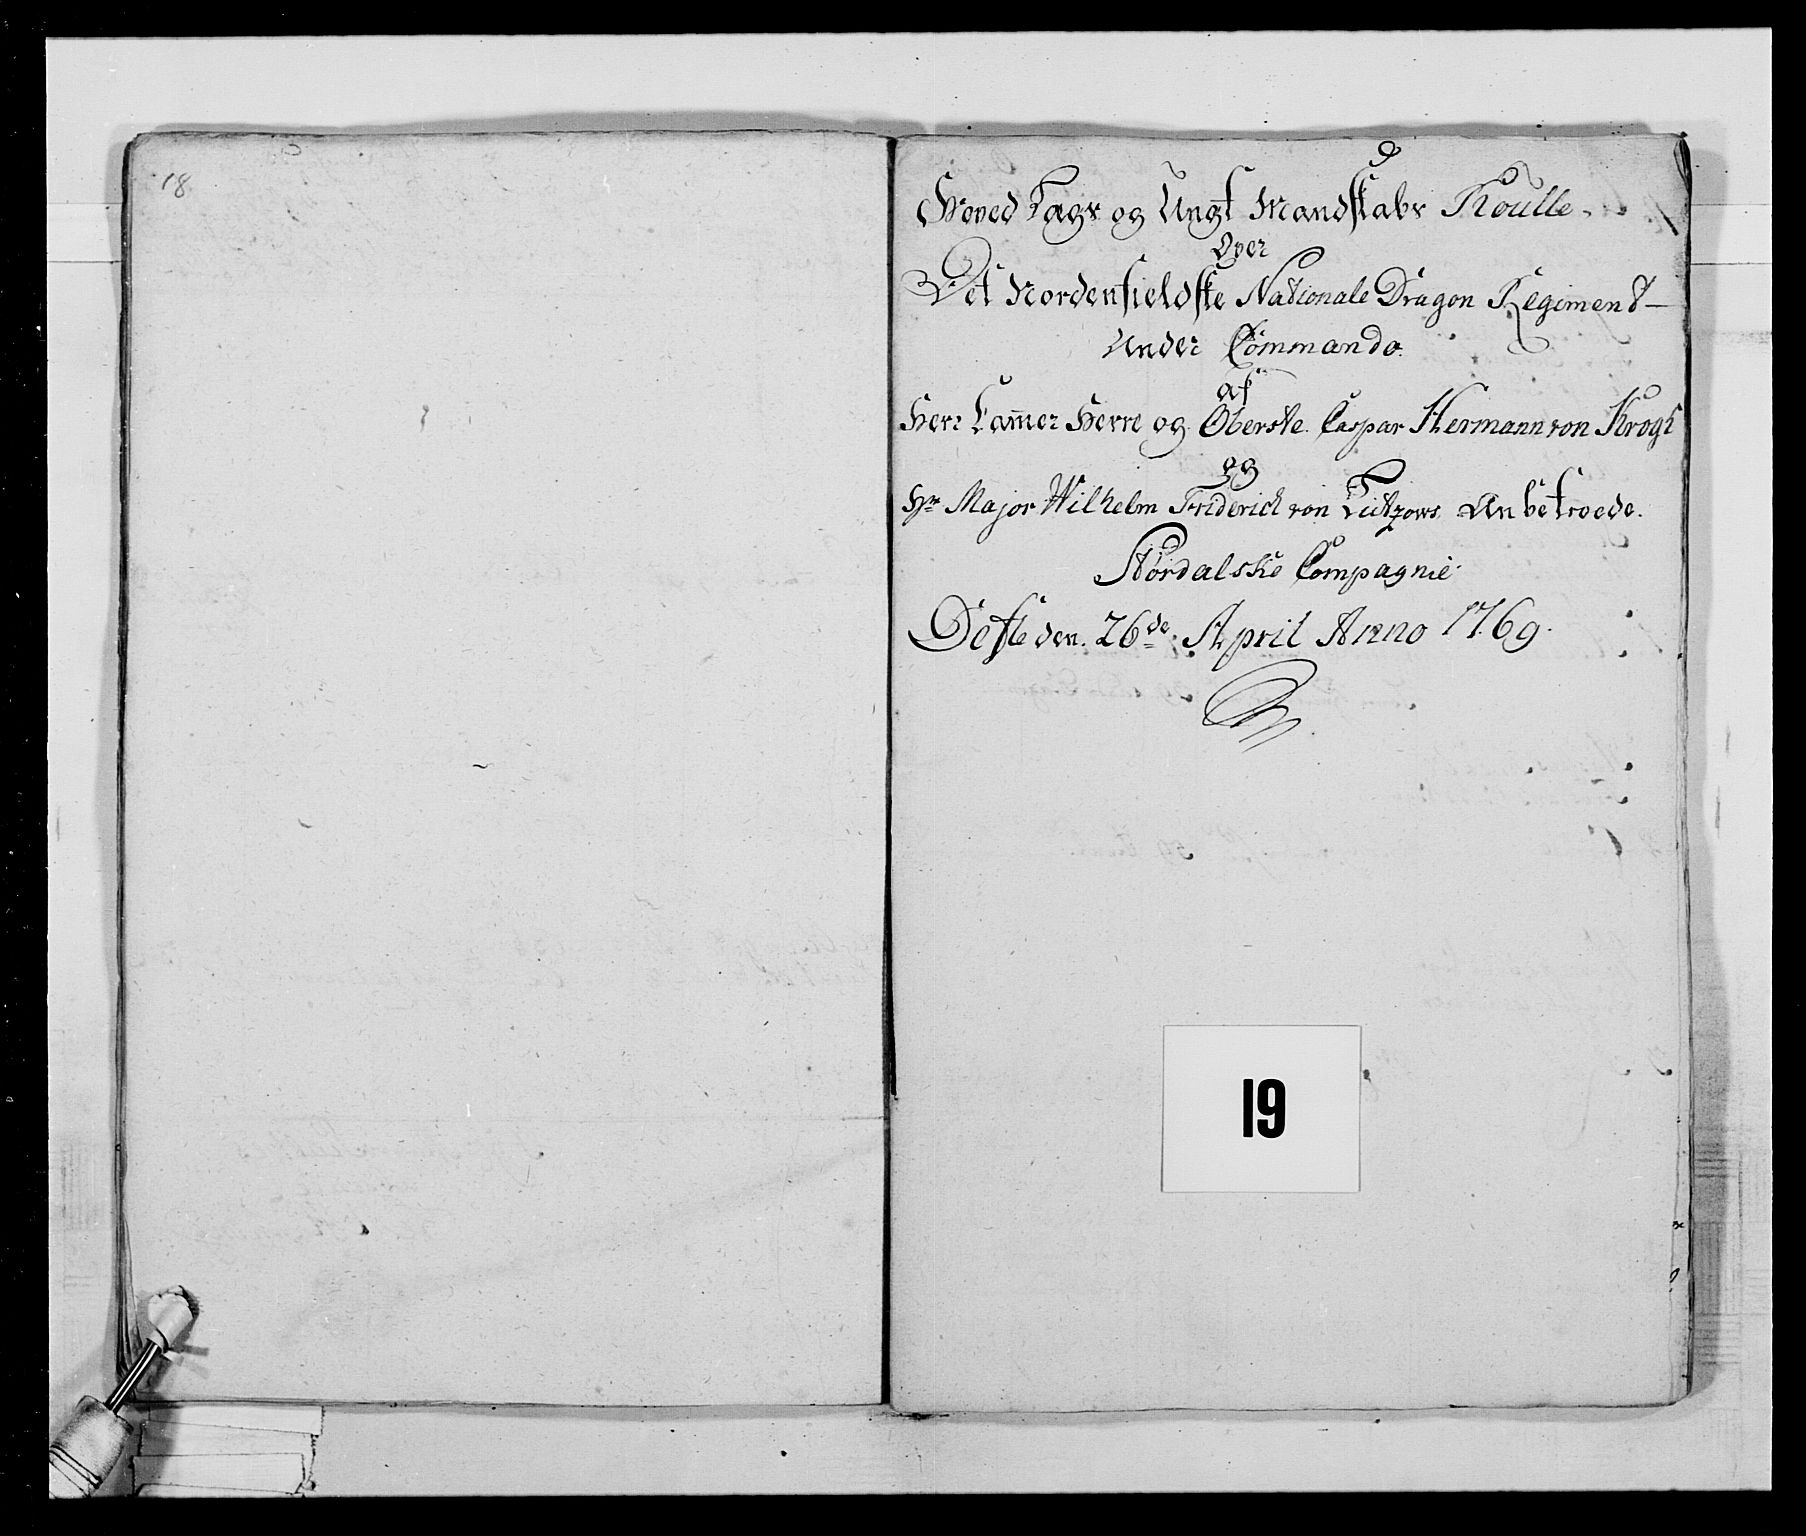 18
Hoved Tags og Ungt Mandskabs Roulle.
Over
Det Nordenfieldske Nationale Dragon Regiment
Under Commando.
af
Herr Cammer Herre og Oberste Caspar Hermann von Krogh
og
Hr Major Wilhelm Friderich von Lützows Anbetroede.
Nordalske Compagnie
Defleden. 26de April Anno 1769.
19